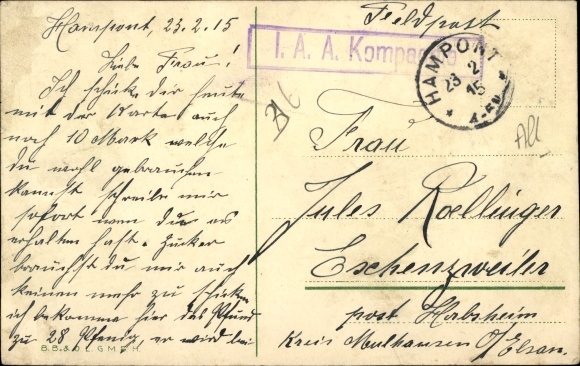 Hampont, 23.2.15
Liebe Frau!
Ich schicke dir heute
mit der Karte auch
noch 10 Mark welche
du wohl gebrauchen
kannst schreibe mir
sofort wen du es
erhalten hast. Zucker
brauchst du mir auch
keinen mehr zu schicken
ich bekomme hier das Pfund
zu 28 Pfenig, er wird bei
B.B. & O.L.G.M.B.H.
Feldpost
I. A. A. Kompagnie
HAMPONT
23 2
15
Frau
Jules Roellinger
Eschenzweiler
post Habsheim
Kreis Mulhausen O/Elsass.